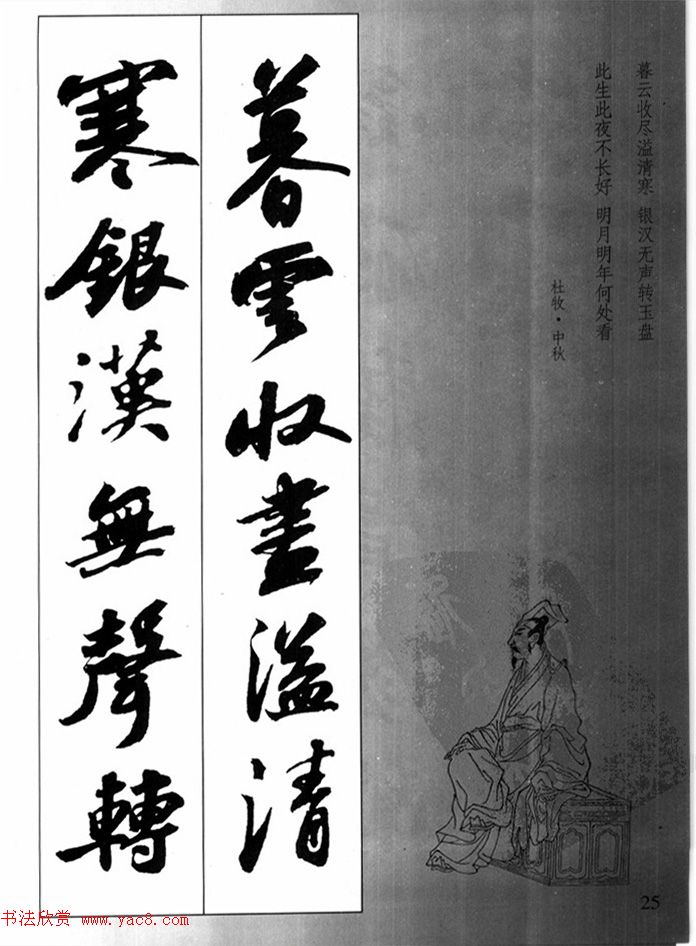 暮云收尽溢清寒 银汉无声转玉盘
此生此夜不长好 明月明年何处看
杜牧·中秋
暮雲收盡溢清
寒銀漢無聲轉
25
书法欣赏 www.yac8.com